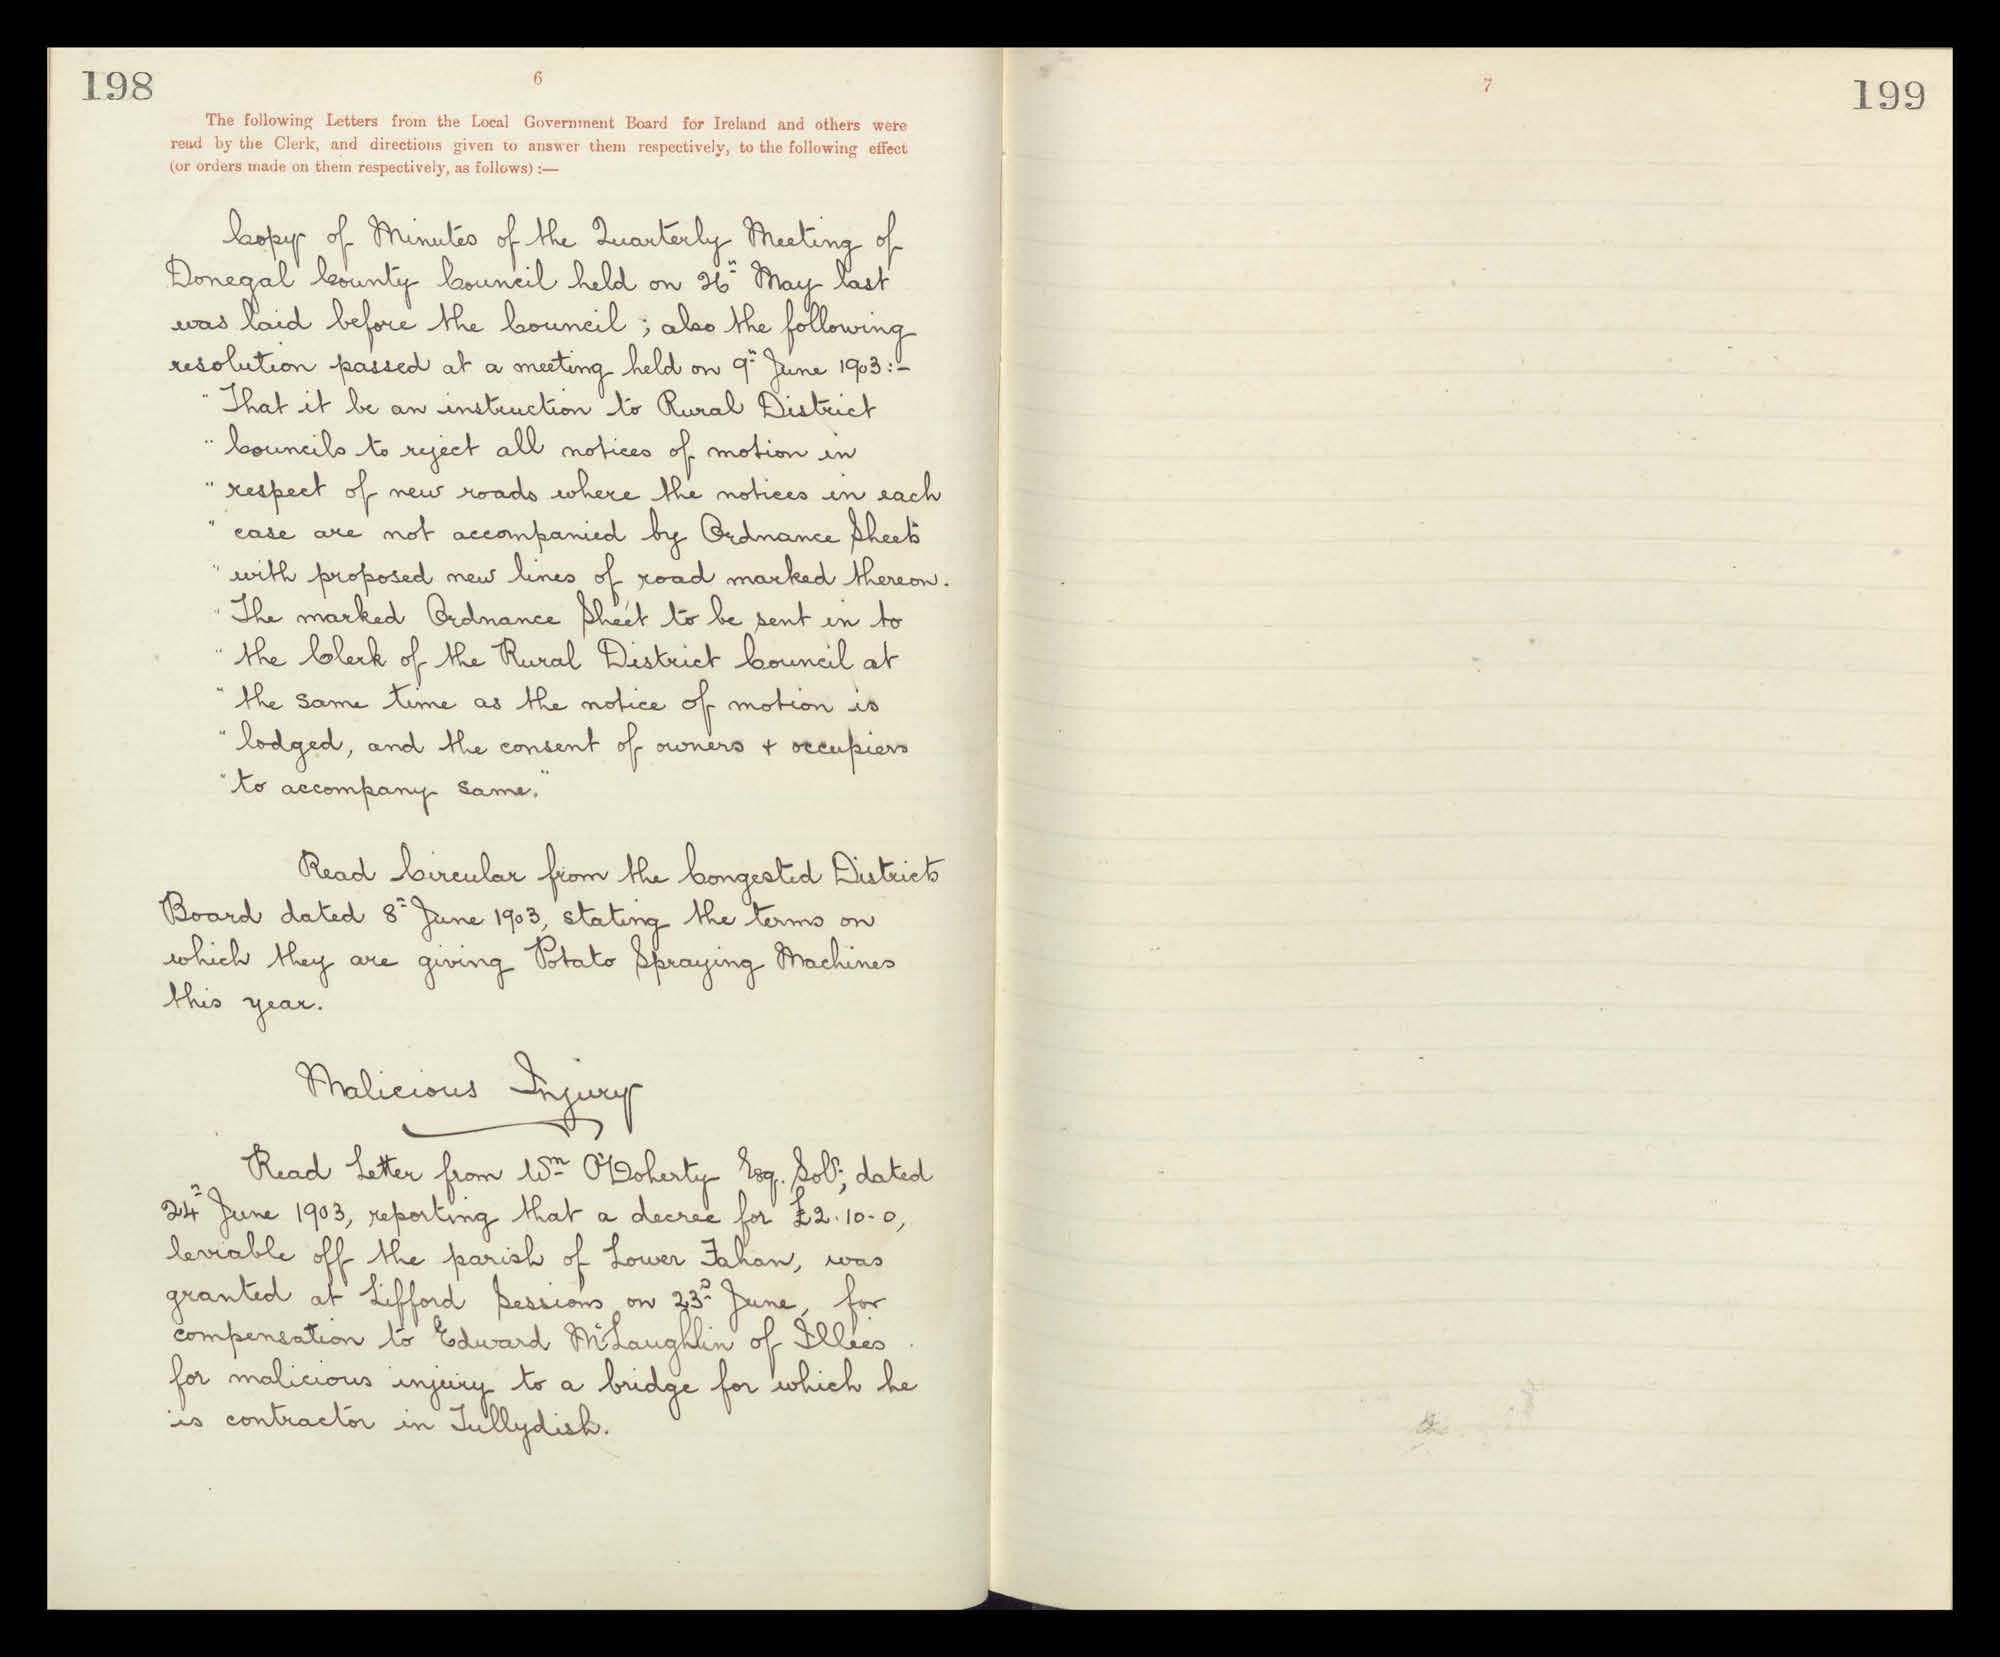 198
6
The following Letters from the Local Government Board for Ireland and others were
read by the Clerk, and directions given to answer them respectively, to the following effect
(or orders made on them respectively, as follows) :—
Copy of Minutes of the Quarterly Meeting of
Donegal County Council held on 26th May last
was laid before the Council ; also the following
resolution passed at a meeting held on 9th June 1903:-
" That it be an instruction to Rural District
" Councils to reject all notices of motion in
" respect of new roads where the notices in each
" case are not accompanied by Ordnance Sheets
" with proposed new lines of road marked thereon.
" The marked Ordnance Sheet to be sent in to
" the Clerk of the Rural District Council at
" the same time as the notice of motion is
" lodged, and the consent of owners + occupiers
" to accompany same."
Read Circular from the Congested Districts
Board dated 8th June 1903, stating the terms on
which they are giving Potato Spraying Machines
this year.
Malicious Injury
Read Letter from Wm O'Doherty Esq. Solr, dated
24th June 1903, reporting that a decree for £2.10-0,
leviable off the parish of Lower Fahan, was
granted at Lifford Sessions on 23rd June, for
compensation to Edward McLaughlin of Illies
for malicious injury to a bridge for which he
is contractor in Tullydish.
7
199